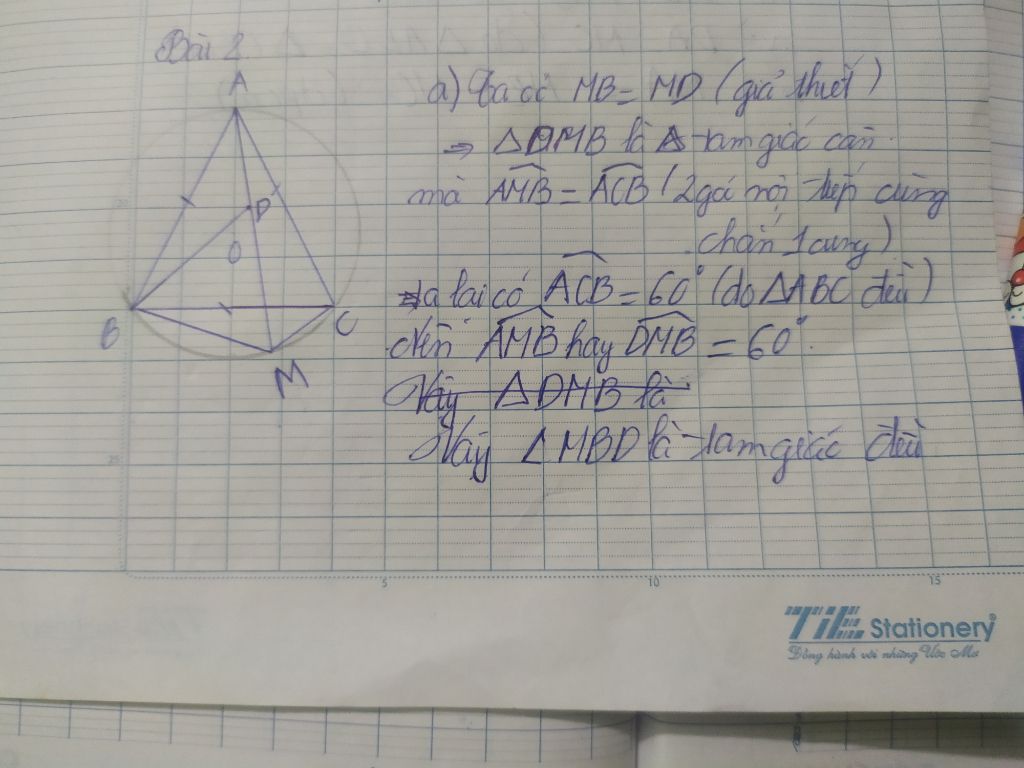 Bài 2
A
D
O
B
C
M
a) Ta có MB = MD (giả thiết)
=> ΔDMB là tam giác cân.
mà AMB = ACB (2 gó nội tiếp cùng
chắn 1 cung)
Ta lại có ACB = 60° (do ΔABC đều)
Nên AMB hay DMB = 60°.
Vậy ΔDMB là
Vậy ΔMBD là tam giác đều
5
10
15
25
TiE Stationery
Đồng hành với những Ước Mơ